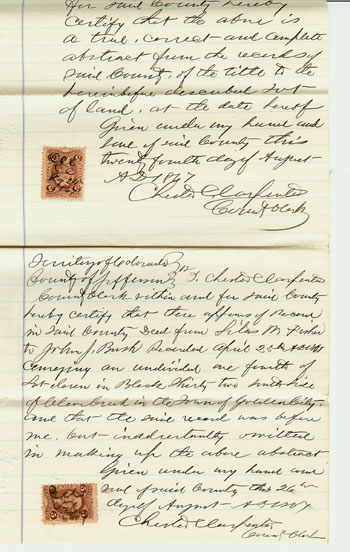 for said County hereby
certify that the above is
a true, correct and complete
abstract from the records of
said County, of the title to the
hereinbefore described Lot
of land, at the date hereof
Given under my hand and
seal of said County this
twenty fourth day of August
A D 1867
Chester Carpenter
County Clerk
Territory of Colorado
County of Jefferson ss I, Chester Carpenter
County Clerk within and for said County
hereby certify that there appears of Record
in said County Deed from Silas W. Fisher
to John J. Bush Recorded April 25th
Conveying an undivided one fourth of
Lot eleven in Block Thirty two South side
of Clear Creek in the Town of Golden City
and that the said record was before
me, but inadvertently omitted
in making up the above abstract
Given under my hand and
seal of said County this 26th
day of August A D 1867
Chester Carpenter
County Clerk